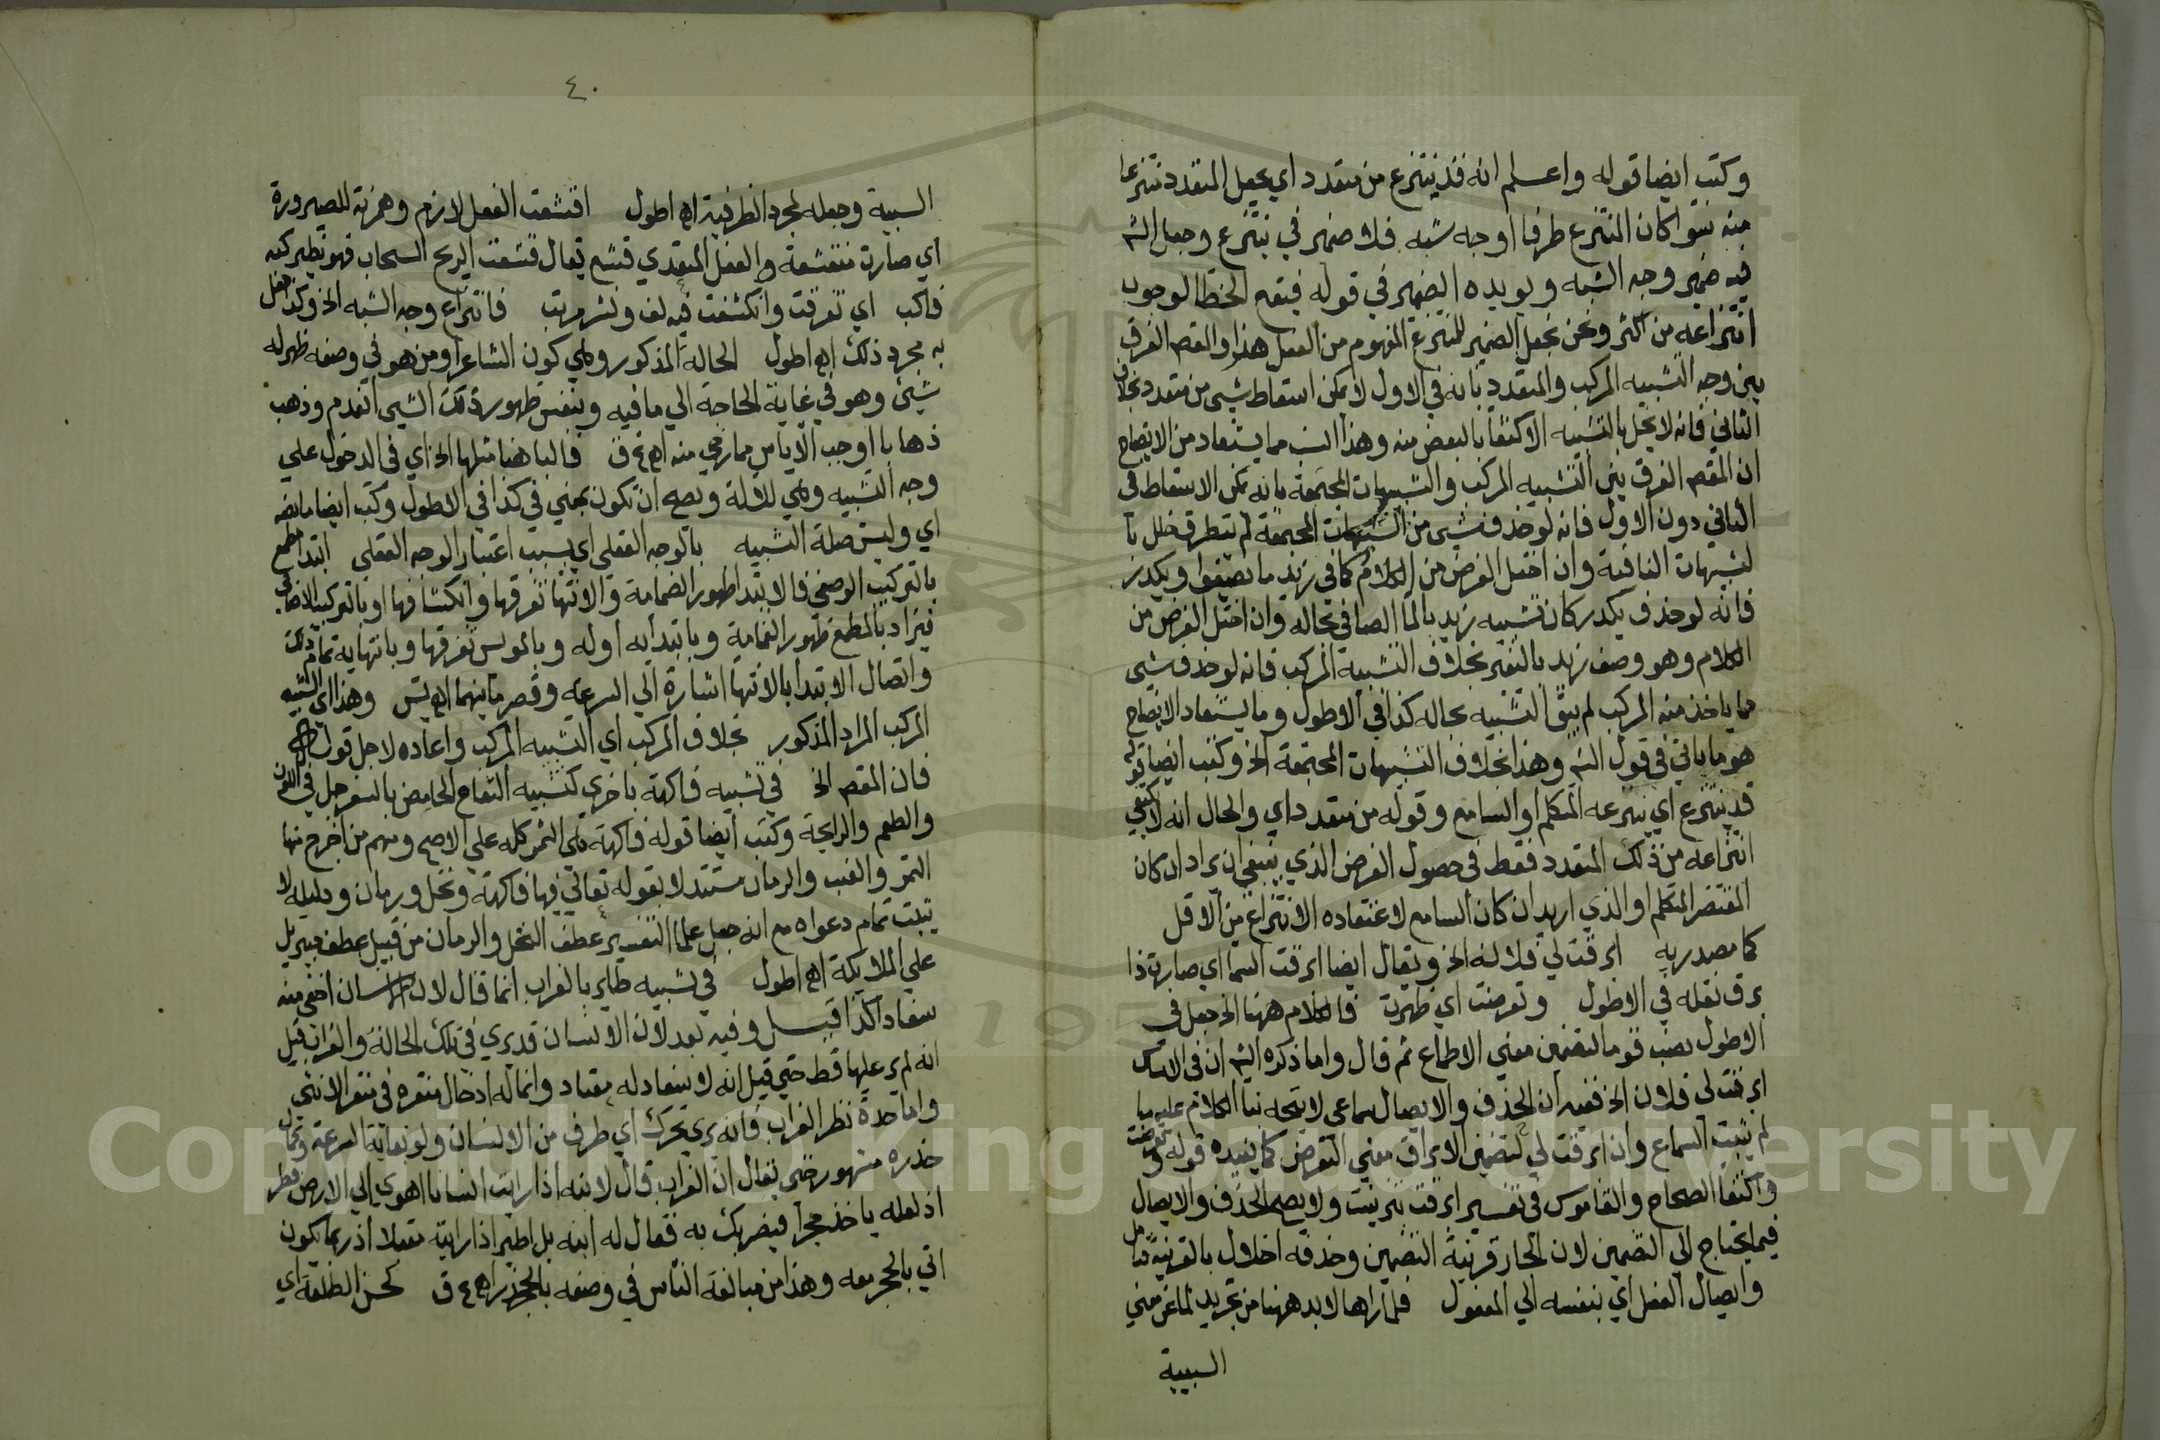 وكتب ايضا قوله واعلم انه قد ينتزع من متعدد اي يجعل المتعدد منتزعا
منه سوا كان المنتزع طرفا او وجه شبه فلا ضمير في ينتزع وجعل الش
فيه ضمير وجه الشبه ويويده الضمير في قوله فيقع الخطا لوجوب
انتزاعه من اكثر ونحن نجعل الضمير للمنتزع المفهوم من الفعل هذا والمقص الفرق
بين وجه التشبيه المركب والمتعدد بانه في الاول لا يمكن اسقاط شي من متعدد بخلاف
الثاني فانه لا يخل بالتشبيه الاكتفا بالبعض منه وهذا انسب مما يستفاد من الايضاح
ان المقص الفرق بين التشبيه المركب والتشبيهات المجتمعة بانه يمكن الاسقاط في
الثاني دون الاول فانه لو حذف شي من التشبيهات المجتمعة لم يتطرق خلل با
لتشبيهات الباقية وان اختل الغرض من الكلام كما في زيد ما يصفوا ويكدر
فانه لو حذف يكدر كان تشبيه زيد بالما الصافي بحاله وان اختل الغرض من
الكلام وهو وصف زيد بالتغير بخلاف التشبيه المركب فانه لو حذف شي
مما ياخذ منه المركب لم يبق التشبيه بحاله كذا في الاطول وما يستفاد الايضاح
هو ما ياتي في قول الش وهذا بخلاف التشبيهات المجتمعة الخ وكتب ايضا قوله
قد ينتزع اي ينتزعه المتكلم او السامع وقوله من متعدد اي والحال انه لا يكفي
انتزاعه من ذلك المتعدد فقط في حصول الغرض الذي ينبغي ان يراد ان كان
المقتصر المتكلم او الذي اريد ان كان السامع لاعتقاده الانتزاع من الاقل
كما مصدريه ابرقت لي فلانة الخ ويقال ايضا ابرقت السما اي صارت ذا
برق نقله في الاطول وتعرضت اي ظهرت فالكلام ههنا الخ جعل في
الاطول نصب قوما لتضمين معني الاطماع ثم قال واما ذكره الش ان في الاساس
ابرقت لي فلان الخ ففيه ان الحذف والايصال سماعي لا يتجه بنا الكلام عليه ما
لم يثبت السماع وان ابرقت لي لتضمين الابراق معني التعرض كما يفيده قوله وتعرضت
واكتفا الصحاح والقاموس في تفسير ابرقت بتزينت ولا يصح الحذف والايصال
فيما يحتاج الي التضمين لان الجار قرينة التضمين وحذفه اخلال بالقرينة تامل
وايصال الفعل اي بنفسه الي المفعول فلما راها لا بد ههنا من تجريد لما عن معني
السببية
٤٠
السببية وجعله لمجرد الظرفية اه اطول اقشعت الفعل لازم وهمزته للصيرورة
اي صارت منقشعة والفعل المتعدي قشع يقال قشعت الريح السحاب فهو نظير كبه
فاكب اي تفرقت وانكشفت فيه لف ونشر مرتب فانتزاع وجه الشبه الخ وكذا جعل
به مجرد ذلك اه اطول الحالة المذكور وهي كون الشاعر او من هو في وصفه ظهر له
شيئ وهو في غاية الحاجة الي ما فيه وبنفس ظهور ذلك الشيي انعدم وذهب
ذهابا اوجب الاياس مما رجي منه اه ع ق فالبا هنا مثلها الخ اي في الدخول علي
وجه التشبيه وهي للالة ويصح ان تكون بمعني في كذا في الاطول وكتب ايضا ما نصه
اي وليس صلة التشبيه بالوجه العقلي اي بسبب اعتبار الوجه العقلي ابتدا مطمع
بالتركيب الوصفي فالابتدا ظهور الغمامة والانتها تفرقها وانكشافها او بالتركيب الاضافي
فيراد بالمطمع ظهور الغمامة وبابتدايه اوله وبالمويس تفرقها وبانتهايه تمام ذلك
واتصال الابتدا بالانتها اشارة الي السرعة وقصر ما بينهما اه يس وهذا اي التشبيه
المركب المراد المذكور بخلاف المركب اي التشبيه المركب واعاده لاجل قول
فان المقص الخ في تشبيه فاكهة باخري كتشبيه التفاح الحامض بالسفرجل في اللون
والطعم والرايحة وكتب ايضا قوله فاكهة هي الثمر كله علي الاصح ومنهم من اخرج منها
التمر والعنب والرمان مستدلا بقوله تعالي فيها فاكهة ونخل ورمان ودليله لا
يثبت تمام دعواه مع انه جعل علما التفسير عطف النخل والرمان من قبيل عطف جبريل
علي الملايكة اه اطول في تشبيه طاير بالغراب انما قال لان الانسان اخفي منه
سفادا كذا قيل وفيه بعد لان الانسان قد يري في تلك الحالة والغراب قيل
انه لم ير عليها قط حتي قيل انه لا سفاد له معتاد وانما له ادخال منقره في منقر الانثي
واما حدة نظر الغراب فانه يري تحرك اي طرف من الانسان ولو بغاية السرعة وكمال
حذره مشهور حتي يقال ان الغراب قال لابنه اذا رايت انسانا اهوي الي الارض فطر
اذ لعله ياخذ حجرا فيضربك به فقال له ابنه بل اطير اذا رايته مقبلا اذ ربما يكون
اتي بالحجر معه وهذا من مبالغة الناس في وصفه بالحذر اه ع ق كحسن الطلعة اي
Copyright © King Saud University
195